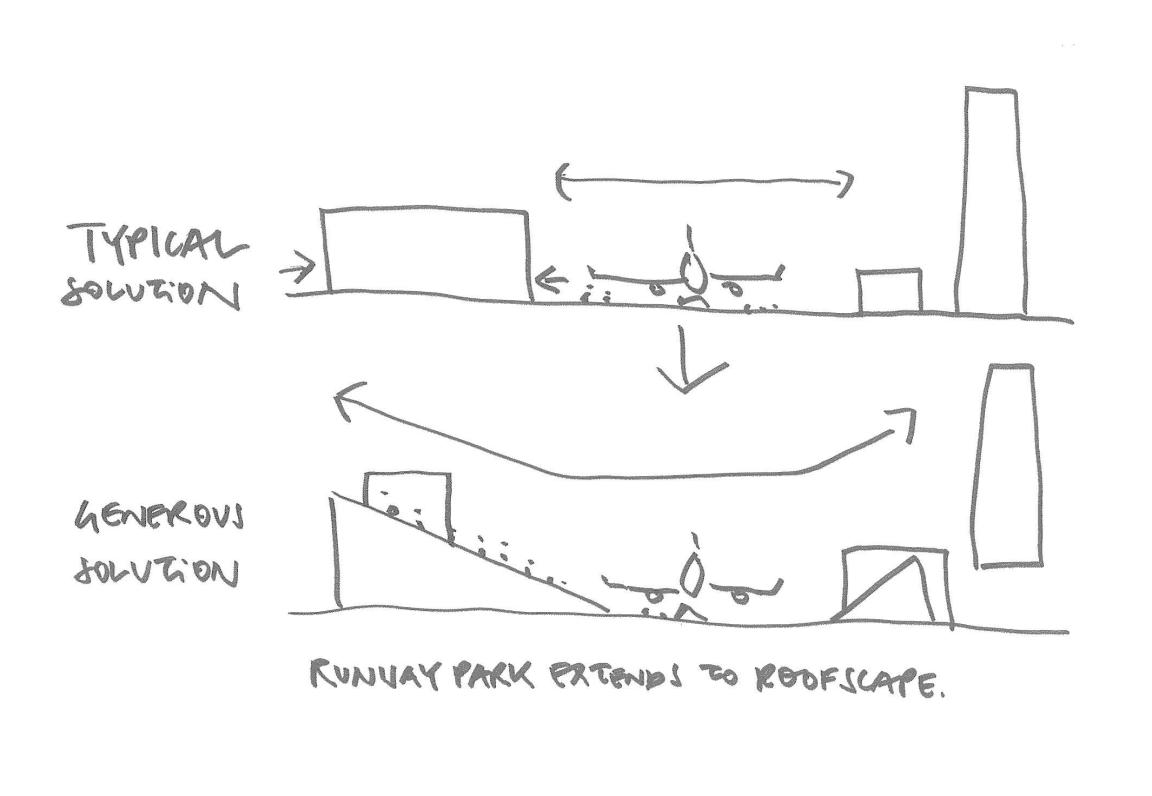 TYPICAL
SOLUTION
GENEROUS
SOLUTION
RUNWAY PARK EXTENDS TO ROOFSCAPE.